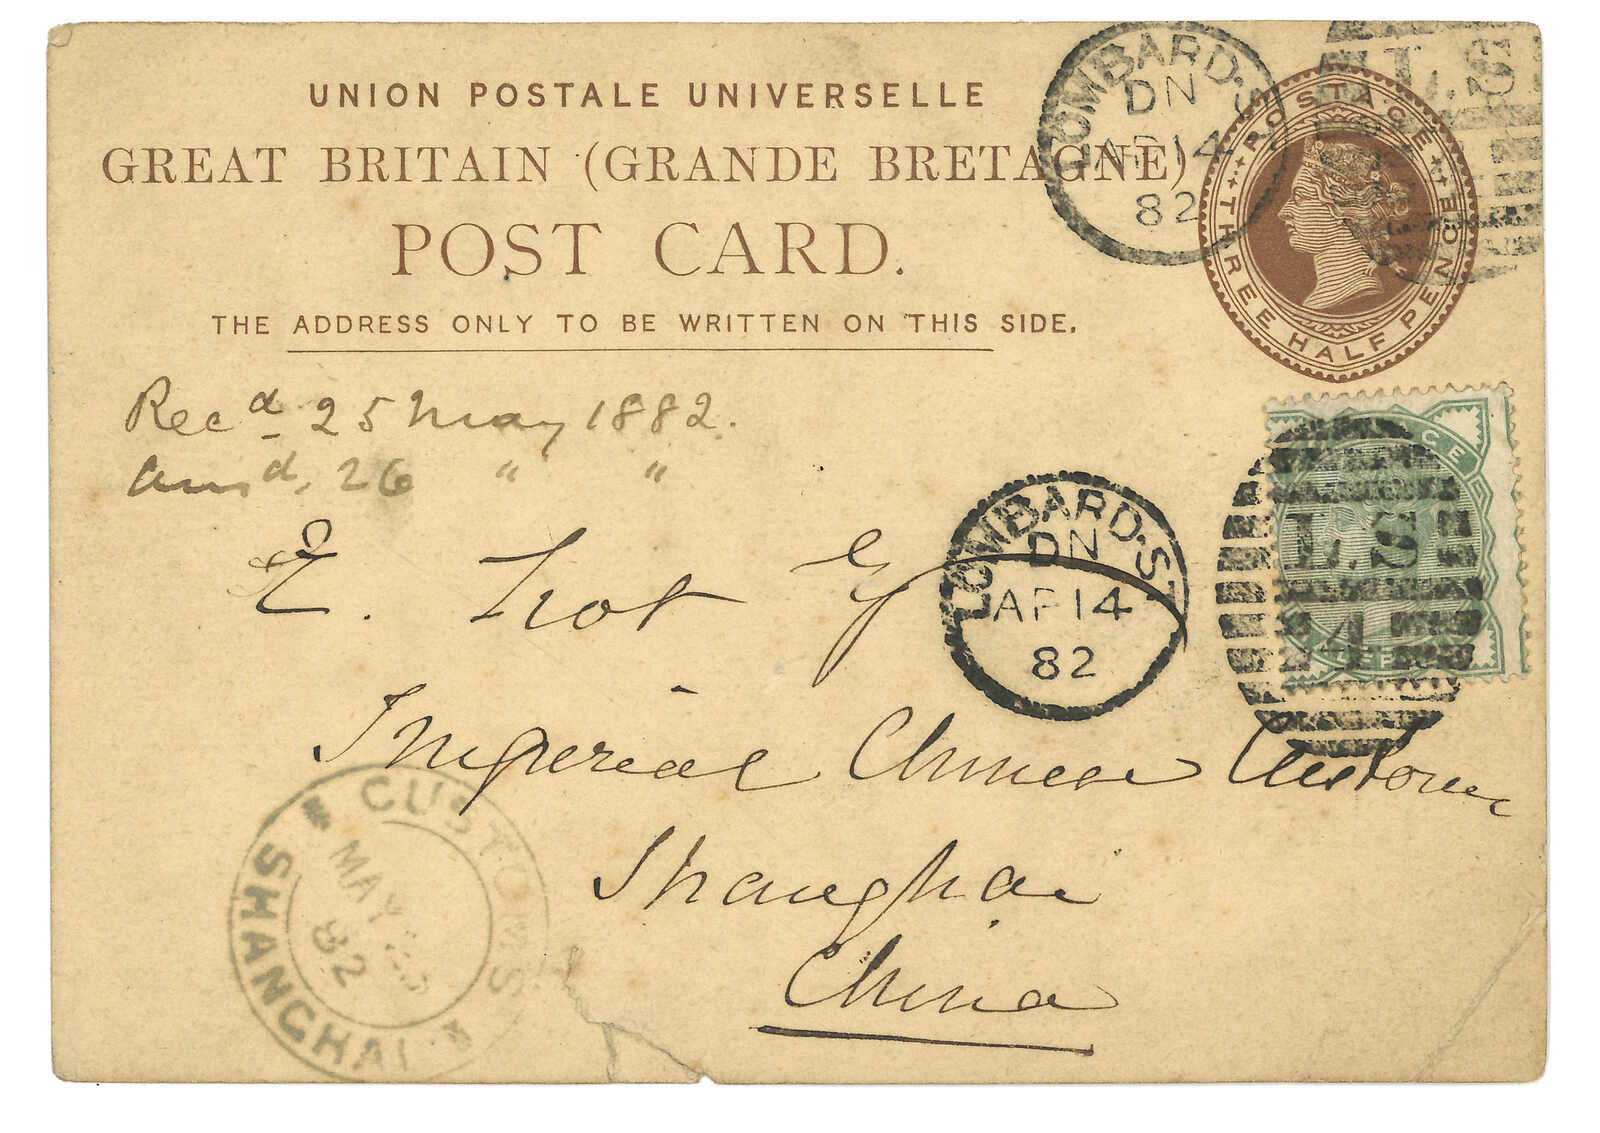 UNION POSTALE UNIVERSELLE
GREAT BRITAIN (GRANDE BRETAGNE)
POST CARD.
THE ADDRESS ONLY TO BE WRITTEN ON THIS SIDE.
LOMBARD·S
DN
AP 14
82
L.S
POSTAGE THREE HALF PENCE
Recd 25 May 1882.
Ansd, 26 " "
E.
LOMBARD·ST
DN
AP 14
82
L.S
14
Imperial Chinese Customs
Shanghai
China
CUSTOMS
MAY
82
SHANGHAI